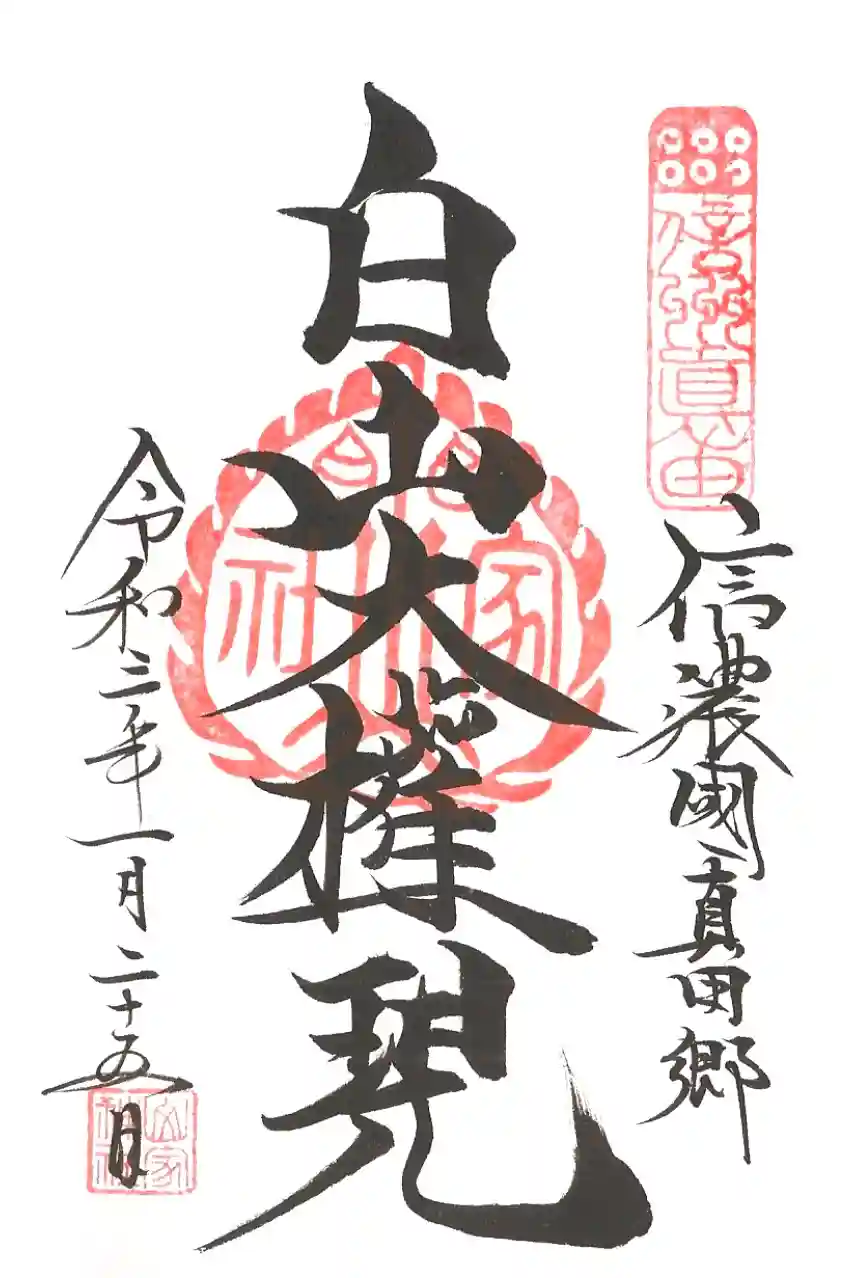 信州真田
信濃國真田郷
白山大権現
令和三年一月二十五日
山家神社